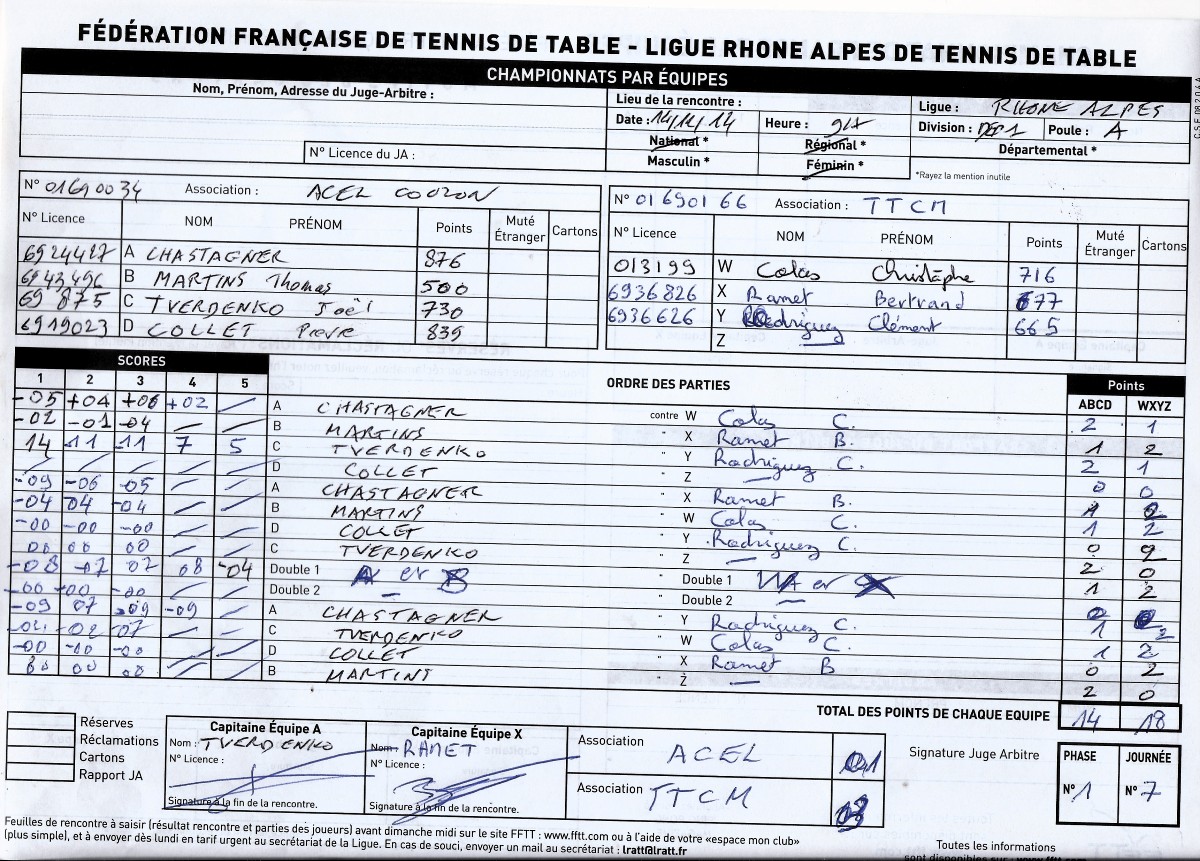 FÉDÉRATION FRANÇAISE DE TENNIS DE TABLE - LIGUE RHONE ALPES DE TENNIS DE TABLE
CHAMPIONNATS PAR ÉQUIPES
Nom, Prénom, Adresse du Juge-Arbitre :
N° Licence du JA :
Lieu de la rencontre :
Date : 14/11/14 Heure : 9H
National * Régional *
Masculin * Féminin *
Ligue : RHONE ALPES
Division : Poule : A
Départemental *
*Rayez la mention inutile
N° 01690034 Association : ACEL COUZON
N° Licence NOM PRÉNOM Points Muté Étranger Cartons
6924427 A CHASTAGNER 876
6943496 B MARTINS Thomas 500
69 875 C TVERDENKO Joël 730
6919023 D COLLET Pierre 839
N° 01690166 Association : TTCM
N° Licence NOM PRÉNOM Points Muté Étranger Cartons
013199 W Colas Christophe 716
6936826 X Ramet Bertrand 677
6936626 Y Rodriguez Clément 665
Z
SCORES ORDRE DES PARTIES Points
1 2 3 4 5 ABCD WXYZ
-05 +04 +06 +02 A CHASTAGNER contre W Colas C. 2 1
-02 -01 -04 B MARTINS " X Ramet B. 1 2
14 -11 -11 7 5 C TVERDENKO " Y Rodriguez C. 2 1
D COLLET " Z 0 0
-09 -06 -05 A CHASTAGNER " X Ramet B. 2
-04 04 -04 B MARTINS " W Colas C. 1 2
-00 -00 -00 D COLLET " Y Rodriguez C. 0 2
00 00 00 C TVERDENKO " Z 2 0
-08 -07 07 08 -04 Double 1 A et B Double 1 W et X 1 2
-00 -00 -00 Double 2 Double 2
-09 07 -09 -09 A CHASTAGNER " Y Rodriguez C. 1 2
-02 -07 C TVERDENKO " W Colas C. 1 2
-00 -00 -00 D COLLET " X Ramet B 0 2
00 00 B MARTINS " Z 2 0
TOTAL DES POINTS DE CHAQUE EQUIPE 14 18
Réserves
Réclamations
Cartons
Rapport JA
Capitaine Équipe A
Nom : TVERDENKO
N° Licence :
Signature à la fin de la rencontre.
Capitaine Équipe X
Nom RAMET
N° Licence :
Signature à la fin de la rencontre.
Association ACEL 01
Association TTCM 03
Signature Juge Arbitre
PHASE JOURNÉE
N° 1 N° 7
Feuilles de rencontre à saisir (résultat rencontre et parties des joueurs) avant dimanche midi sur le site FFTT : www.fftt.com ou à l'aide de votre «espace mon club»
(plus simple), et à envoyer dès lundi en tarif urgent au secrétariat de la Ligue. En cas de souci, envoyer un mail au secrétariat : lratt@lratt.fr
Toutes les informations
sont disponibles sur :